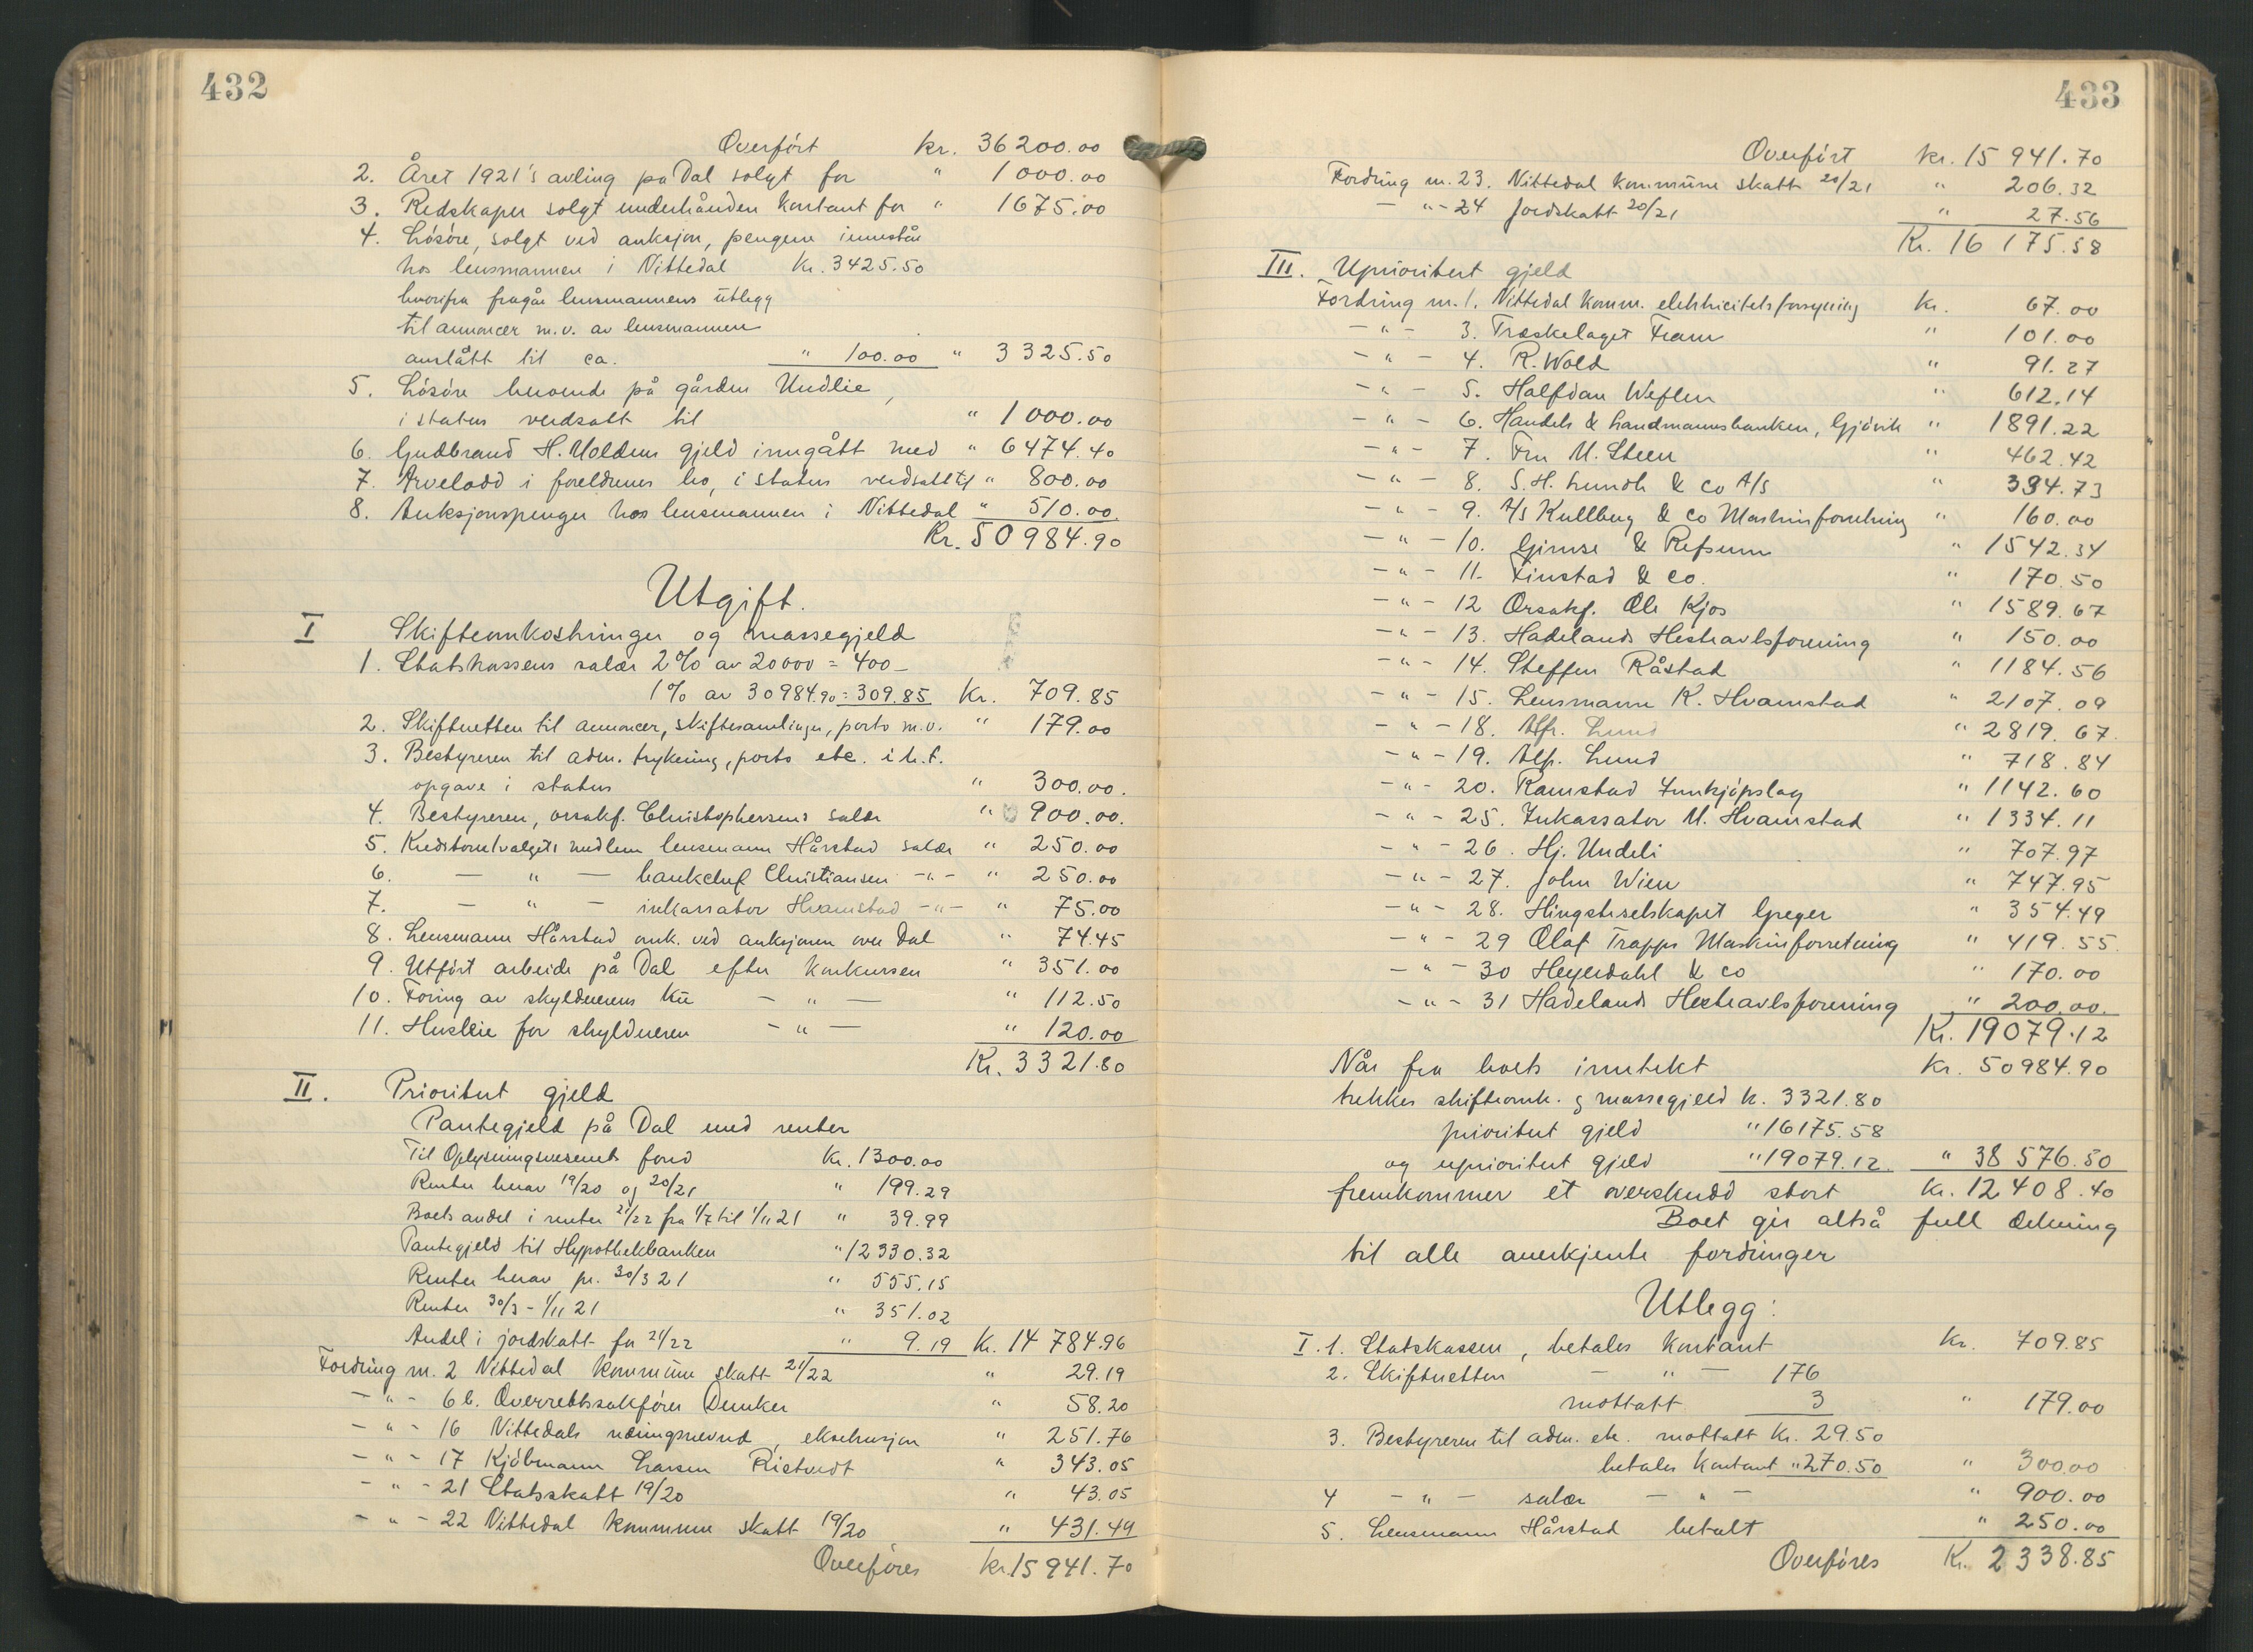 432
Overført kr. 36200.00
2. Året 1921's avling på Dal solgt for " 1000.00
3. Redskaper solgt underhånden kontant for " 1675.00
4. Løsøre, solgt ved auksjon, pengene innestår
hos lensmannen i Nittedal kr. 3425.50
hvorfra fragår lensmannens utlegg
til annoncer m.v. av lensmannen
anslått til ca. " 100.00 " 3325.50
5. Løsøre beroende på gården Undlie,
i status verdsatt til " 1000.00
6. Gudbrand H. Moldens gjeld inngått med " 6474.40
7. Arvelodd i foreldrenes bo, i status verdsatt til " 800.00
8. Auksjonspenger hos lensmannen i Nittedal " 510.00.
Kr. 50984.90
Utgift.
I Skifteomkostninger og massegjeld
1. Statskassens salær 2% av 20000 = 400-
1% av 30984.90 = 309.85 Kr. 709.85
2. Skifteretten til annoncer, skiftesamlinger, porto m.v. " 179.00
3. Bestyreren til adm. trykning, porto etc. i h.t.
opgave i status " 300.00.
4. Bestyreren, orsakf. Christophersens salær " 900.00.
5. Kreditorutvalgets medlem lensmann Hårstad salær " 250.00
6. — " — bankchef Christiansen -"- " 250.00
7. — " — inkassator Hvamstad -"- " 75.00
8. Lensmann Hårstad omk. ved auksjonen over Dal " 74.45
9. Utført arbeide på Dal efter konkursen " 351.00
10. Foring av skyldnerens ku — " — " 112.50
11. Husleie for skyldneren — " — " 120.00
Kr. 3321.80
II. Prioritert gjeld
Pantegjeld på Dal med renter
Til Oplysningsvesenets fond Kr. 1300.00
Renter herav 19/20 og 20/21 " 199.29
Boets andel i renter 21/22 fra 1/7 til 1/11 21 " 39.99
Pantegjeld til Hypothekbanken " 12330.32
Renter herav pr. 30/3 21 " 555.15
Renter 30/3 - 1/11 21 " 351.02
Andel i jordskatt for 21/22 " 9.19 Kr. 14784.96
Fordring nr. 2 Nittedal kommune skatt 21/22 " 29.19
- " - 6b. Overrettssakfører Dunker " 58.20
- " - 16 Nittedals næringsnevnd, eksekusjon " 251.76
- " - 17 Kjøbmann Larsen Ristvedt " 343.05
- " - 21 Statsskatt 19/20 " 43.05
- " - 22 Nittedal kommune skatt 19/20 " 431.49
Overføres kr. 15941.70
433
Overført kr. 15941.70
Fordring nr. 23. Nittedal kommune skatt 20/21 " 206.32
- " - 24 Jordskatt 20/21 " 27.56
Kr. 16175.58
III. Uprioritert gjeld
Fordring nr. 1. Nittedal komm. elektricitetsforsyning Kr. 67.00
- " - 3. Træskelaget Fram " 101.00
- " - 4. R. Wold " 91.27
- " - 5. Halfdan Weflen " 612.14
- " - 6. Handels & Landmannsbanken, Gjøvik " 1891.22
- " - 7. Fru M. Steen " 462.42
- " - 8. S.H. Lundh & Co A/S " 394.73
- " - 9. A/S Kullberg & Co Maskinforretning " 160.00
- " - 10. Gimse & Refsum " 1542.34
- " - 11. Finstad & Co. " 170.50
- " - 12 Orsakf. Ole Kjos " 1589.67
- " - 13. Hadelands Hesteavlsforening " 150.00
- " - 14. Steffen Råstad " 1184.56
- " - 15. Lensmann K. Hvamstad " 2107.09
- " - 18. Alfr. Lund " 2819.67.
- " - 19. Alfr. Lund " 718.84
- " - 20. Ramstad Innkjøpslag " 1142.60
- " - 25. Inkassator M. Hvamstad " 1334.11
- " - 26. Hj. Undeli " 707.97
- " - 27. John Wien " 747.95
- " - 28. Hingsteselskapet Greger " 354.49
- " - 29 Olaf Trapps Maskinforretning " 419.55.
- " - 30 Heyerdahl & Co " 170.00
- " - 31 Hadelands Hesteavlsforening " 200.00.
Kr. 19079.12
Når fra boets inntekt Kr. 50984.90
trekkes skifteomk. og massegjeld kr. 3321.80
prioritert gjeld " 16175.58
og uprioritert gjeld " 19079.12. " 38576.50
fremkommer et overskudd stort kr. 12408.40
Boet gir altså full dekning
til alle anerkjente fordringer
Utlegg:
I. 1. Statskassen, betales kontant Kr. 709.85
2. Skifteretten — " — 176
mottatt 3 " 179.00
3. Bestyreren til adm. etc. mottatt Kr. 29.50
betales kontant " 270.50 " 300.00
4 - " - salær - " - " 900.00
5. Lensmann Hårstad betalt " 250.00
Overføres Kr. 2338.85